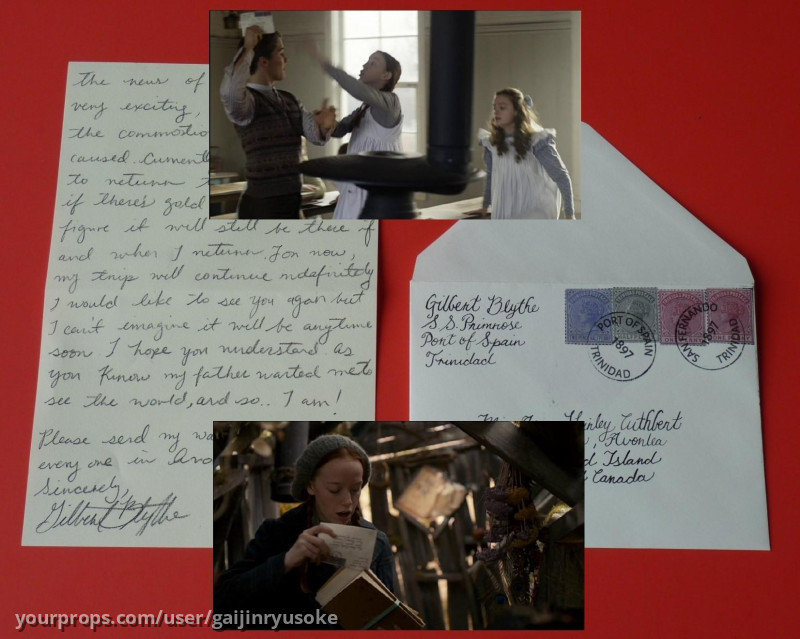 the news of
very exciting,
the commotio
caused. Current
to return t
if there's gold
figure it will still be there if
and when I return. For now,
my trip will continue indefinitely
I would like to see you again but
I can't imagine it will be anytime
soon. I hope you understand as
you know my father wanted me to
see the world, and so.. I am!
Please send my wa
every one in Avo
Sincerely,
Gilbert Blythe
Gilbert Blythe
S.S. Primrose
Port of Spain
Trinidad
PORT OF SPAIN
1897
TRINIDAD
SAN FERNANDO
1897
TRINIDAD
Shirley Cuthbert
Avonlea
d Island
Canada
yourprops.com/user/gaijinryusoke